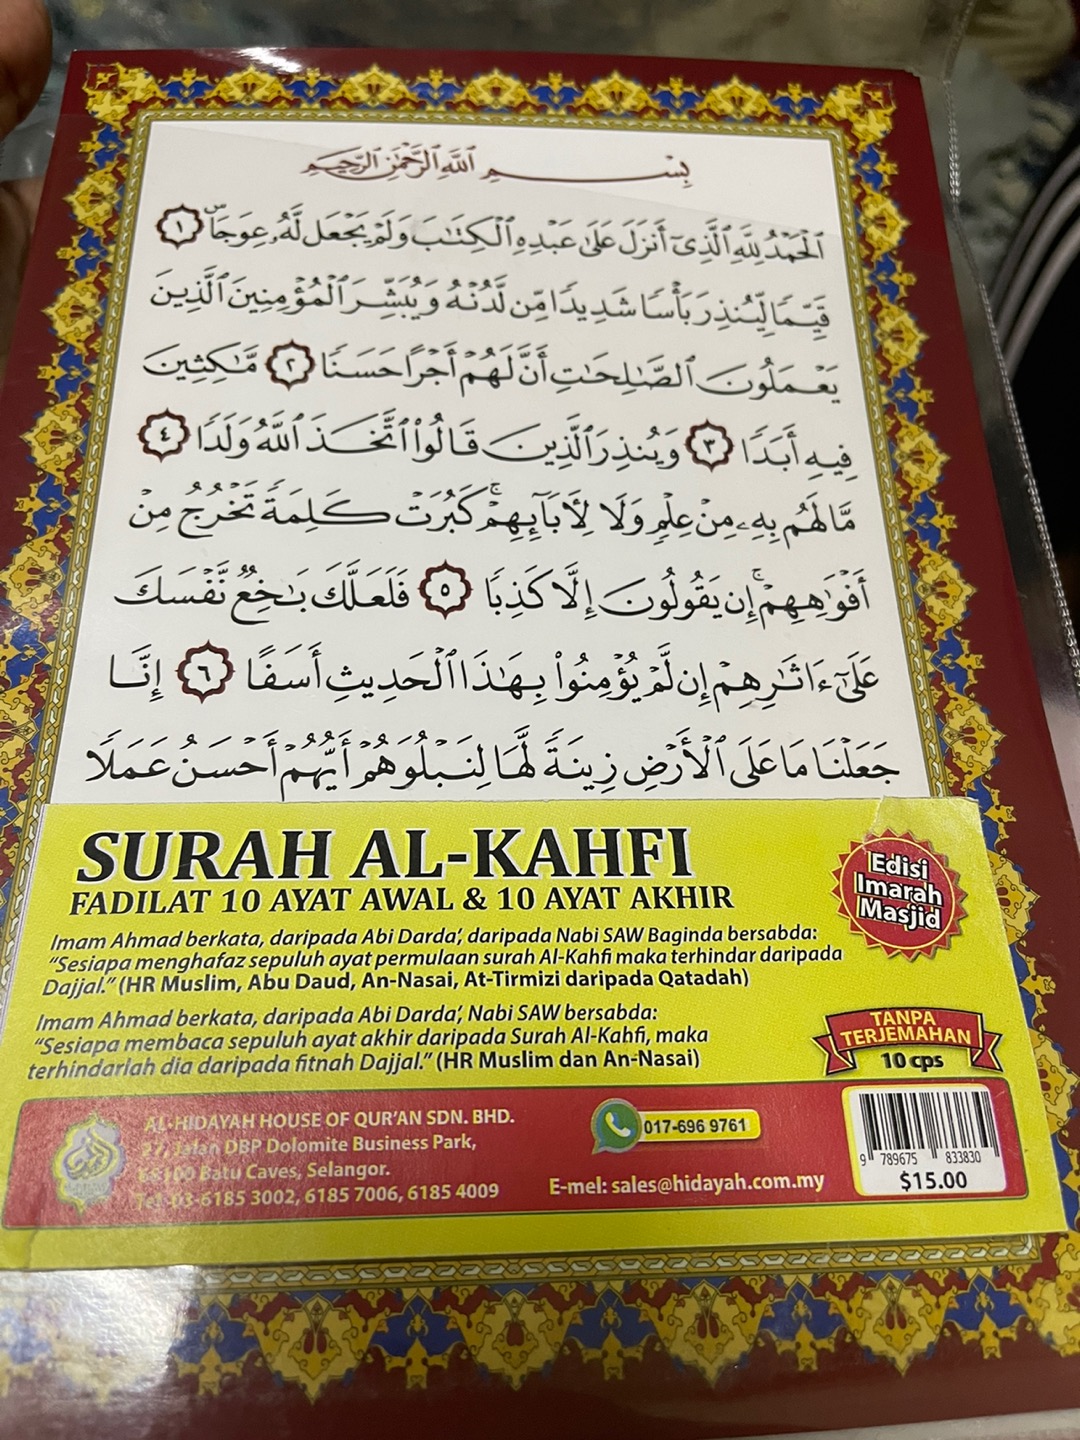 بِسْمِ ٱللَّهِ ٱلرَّحْمَٰنِ ٱلرَّحِيمِ
ٱلْحَمْدُ لِلَّهِ ٱلَّذِىٓ أَنزَلَ عَلَىٰ عَبْدِهِ ٱلْكِتَٰبَ وَلَمْ يَجْعَل لَّهُۥ عِوَجَاۜ ١
قَيِّمًا لِّيُنذِرَ بَأْسًا شَدِيدًا مِّن لَّدُنْهُ وَيُبَشِّرَ ٱلْمُؤْمِنِينَ ٱلَّذِينَ
يَعْمَلُونَ ٱلصَّٰلِحَٰتِ أَنَّ لَهُمْ أَجْرًا حَسَنًا ٢ مَّٰكِثِينَ
فِيهِ أَبَدًا ٣ وَيُنذِرَ ٱلَّذِينَ قَالُوا۟ ٱتَّخَذَ ٱللَّهُ وَلَدًا ٤
مَّا لَهُم بِهِۦ مِنْ عِلْمٍ وَلَا لِأَبَآئِهِمْ ۚ كَبُرَتْ كَلِمَةً تَخْرُجُ مِنْ
أَفْوَٰهِهِمْ ۚ إِن يَقُولُونَ إِلَّا كَذِبًا ٥ فَلَعَلَّكَ بَٰخِعٌ نَّفْسَكَ
عَلَىٰٓ ءَاثَٰرِهِمْ إِن لَّمْ يُؤْمِنُوا۟ بِهَٰذَا ٱلْحَدِيثِ أَسَفًا ٦ إِنَّا
جَعَلْنَا مَا عَلَى ٱلْأَرْضِ زِينَةً لَّهَا لِنَبْلُوَهُمْ أَيُّهُمْ أَحْسَنُ عَمَلًا
SURAH AL-KAHFI
FADILAT 10 AYAT AWAL & 10 AYAT AKHIR
Edisi
Imarah
Masjid
Imam Ahmad berkata, daripada Abi Darda', daripada Nabi SAW Baginda bersabda:
"Sesiapa menghafaz sepuluh ayat permulaan surah Al-Kahfi maka terhindar daripada
Dajjal." (HR Muslim, Abu Daud, An-Nasai, At-Tirmizi daripada Qatadah)
Imam Ahmad berkata, daripada Abi Darda', Nabi SAW bersabda:
"Sesiapa membaca sepuluh ayat akhir daripada Surah Al-Kahfi, maka
terhindarlah dia daripada fitnah Dajjal." (HR Muslim dan An-Nasai)
TANPA
TERJEMAHAN
10 cps
AL-HIDAYAH HOUSE OF QUR'AN SDN. BHD.
27, Jalan DBP Dolomite Business Park,
68100 Batu Caves, Selangor.
Tel: 03-6185 3002, 6185 7006, 6185 4009
017-696 9761
E-mel: sales@hidayah.com.my
9 789675 833830
$15.00